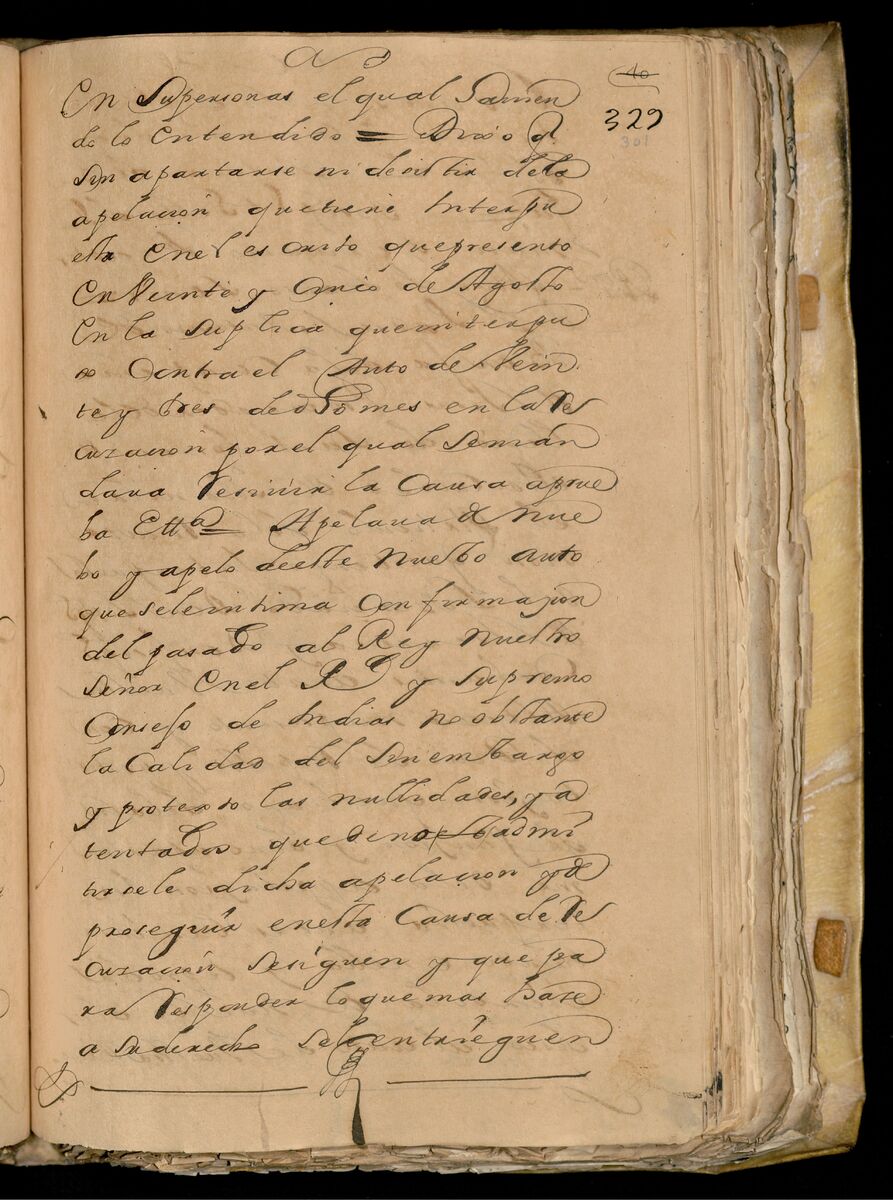 40
329
301
En Supersonas el qual Saviēn
do lo Entendido = Dixo q.
sin apartarse ni desistir dela
apelacion quetiene Interpu
esta Enel escrito quepresento
En Veinte y Cinco de Agosto
En la suplica queinterpu
so Contra el Auto de Vein
te y tres de dho mes en la Re
cuzacion por el qual Semān
dava Resivir la Causa aprue
ba Ettª = Apelava de nue
bo y apelo deeste Nuebo auto
que seleintima Confirmazion
del pasado al Rey Nuestro
Señor Enel Rl y Supremo
Consejo de Indias no obstante
la Calidad del Sinembargo
y protesto las nullidades, y a
tentados que deno admi
tirsele dicha apelacion y de
proseguir enesta Causa de Re
cuzacion Sesiguen y que pa
ra Responder lo que mas hase
a suderecho sele entrieguen